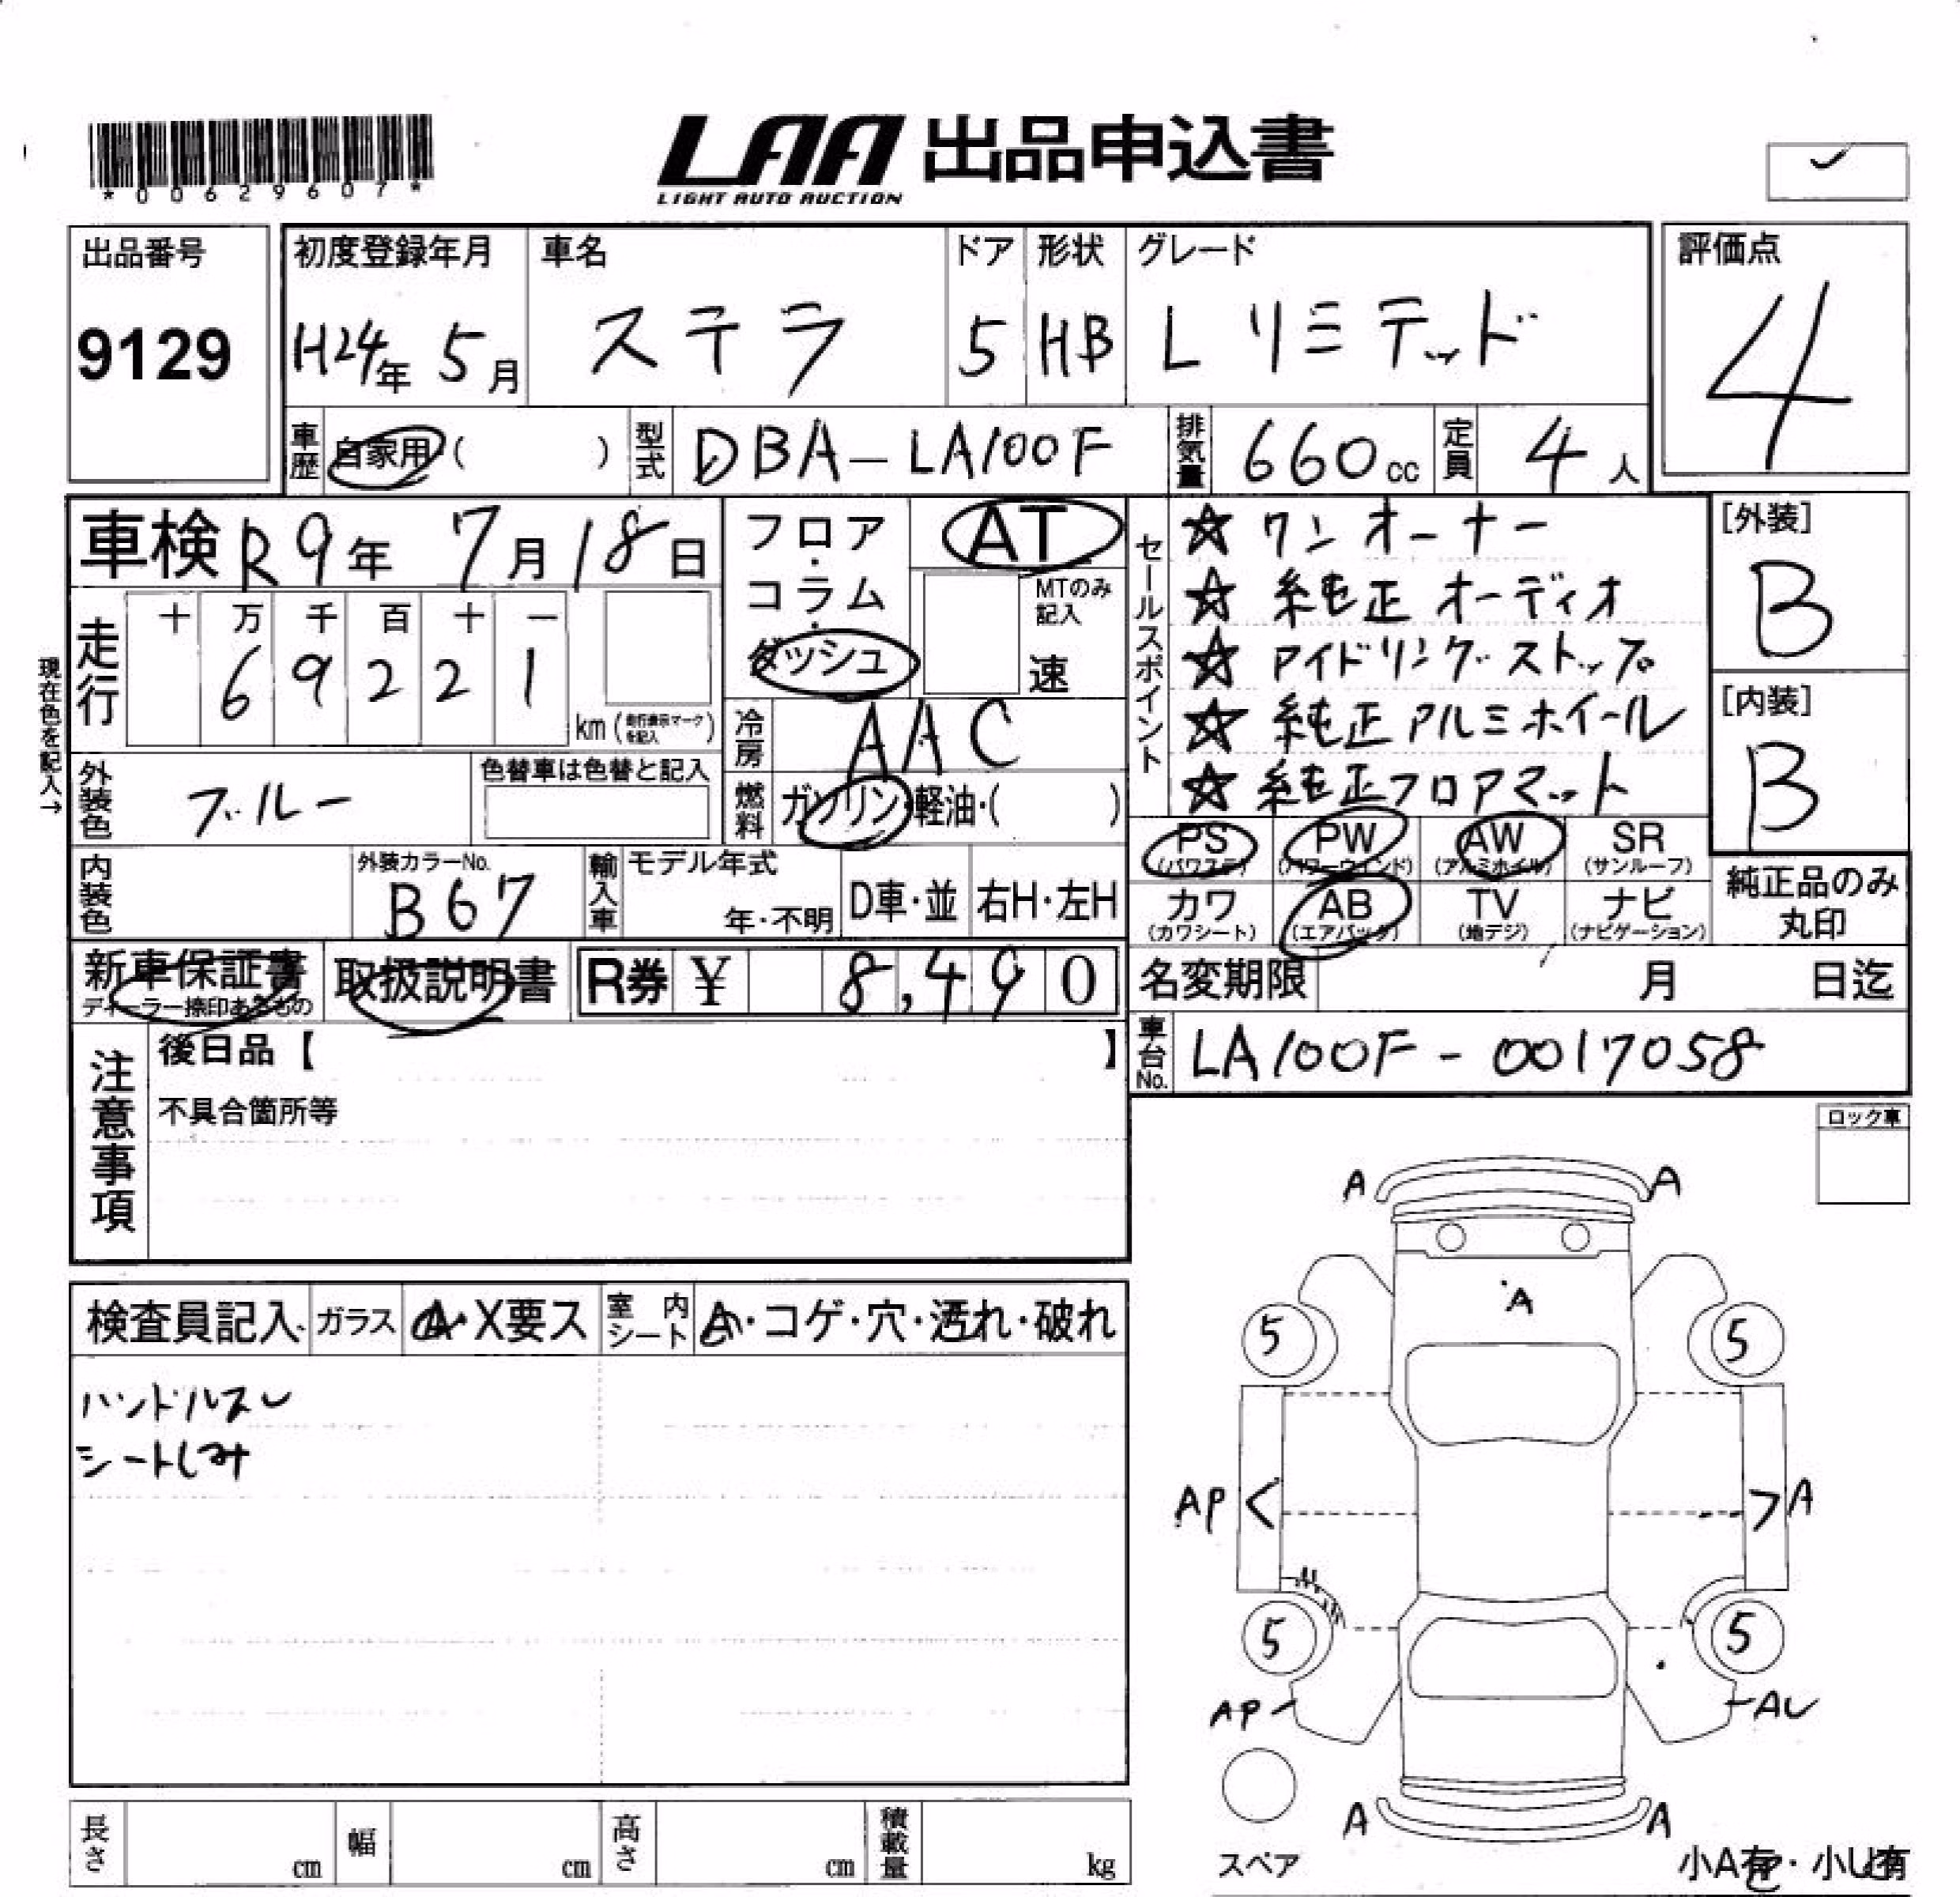 *00629607*
LAA 出品申込書
LIGHT AUTO AUCTION
出品番号
9129
初度登録年月
H24年 5月
車名
ステラ
ドア
5
形状
HB
グレード
L リミテッド
評価点
4
車歴 自家用・( )
型式 DBA-LA100F
排気量 660cc
定員 4人
車検 R9年 7月18日
現在色を記入→
走行
十 万 千 百 十 一
6 9 2 2 1
km (走行表示マークを記入)
フロア・コラム・ダッシュ
AT
MTのみ記入
速
冷房 AAC
燃料 ガソリン・軽油・( )
セールスポイント
☆ ワンオーナー
☆ 純正オーディオ
☆ アイドリングストップ
☆ 純正アルミホイール
☆ 純正フロアマット
[外装]
B
[内装]
B
外装色 ブルー
色替車は色替と記入
内装色
外装カラーNo.
B67
輸入車
モデル年式
年・不明
D車・並
右H・左H
PS (パワステ)
PW (パワーウィンド)
AW (アルミホイル)
SR (サンルーフ)
カワ (カワシート)
AB (エアバック)
TV (地デジ)
ナビ (ナビゲーション)
純正品のみ丸印
新車保証書
ディーラー捺印あるもの
取扱説明書
R券 ¥ 8,490
名変期限 月 日迄
車台No. LA100F-0017058
注意事項
後日品【 】
不具合箇所等
ロック車
検査員記入 ガラス A・X要ス
室内シート A・コゲ・穴・汚れ・破れ
ハンドルスレ
シートしみ
A A
A
5 5
AP A
5 5
AP AU
A A
スペア
小A有・小U有
長さ cm
幅 cm
高さ cm
積載量 kg